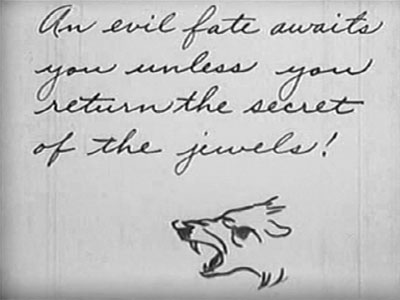 An evil fate awaits
you unless you
return the secret
of the jewels!